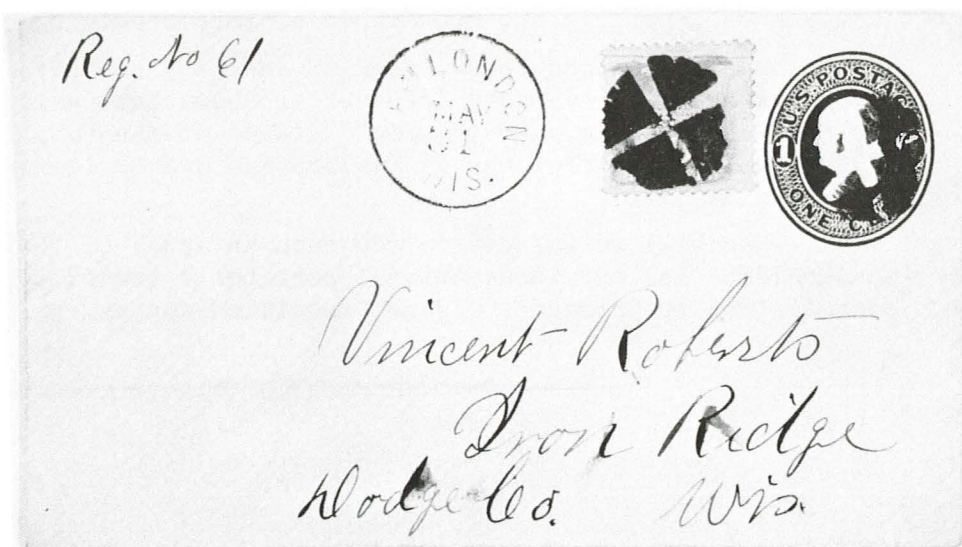 Reg. No 61
LONDON
MAY
WIS.
U.S. POSTAGE
1
ONE
Vincent Roberts
Iron Ridge
Dodge Co. Wis.